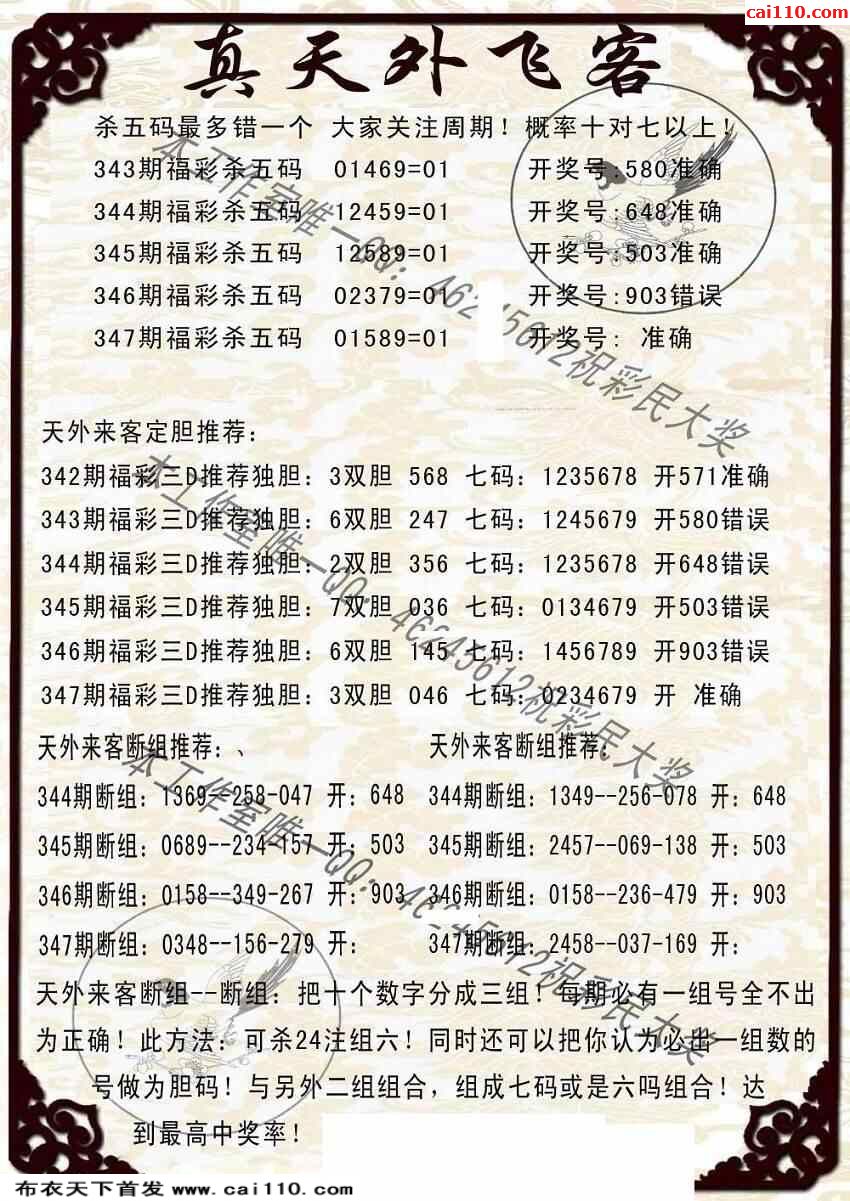 cai110.com
真天外飞客
杀五码最多错一个 大家关注周期！概率十对七以上！
343期福彩杀五码 01469=01 开奖号:580准确
344期福彩杀五码 12459=01 开奖号:648准确
345期福彩杀五码 12589=01 开奖号:503准确
346期福彩杀五码 02379=01 开奖号:903错误
347期福彩杀五码 01589=01 开奖号: 准确
天外来客定胆推荐：
342期福彩三D推荐独胆：3双胆 568 七码：1235678 开571准确
343期福彩三D推荐独胆：6双胆 247 七码：1245679 开580错误
344期福彩三D推荐独胆：2双胆 356 七码：1235678 开648错误
345期福彩三D推荐独胆：7双胆 036 七码：0134679 开503错误
346期福彩三D推荐独胆：6双胆 145 七码：1456789 开903错误
347期福彩三D推荐独胆：3双胆 046 七码：0234679 开 准确
天外来客断组推荐：、 天外来客断组推荐：
344期断组：1369--258-047 开：648 344期断组：1349--256-078 开：648
345期断组：0689--234-157 开：503 345期断组：2457--069-138 开：503
346期断组：0158--349-267 开：903 346期断组：0158--236-479 开：903
347期断组：0348--156-279 开： 347期断组：2458--037-169 开：
天外来客断组--断组：把十个数字分成三组！每期必有一组号全不出
为正确！此方法：可杀24注组六！同时还可以把你认为必出一组数的
号做为胆码！与另外二组组合，组成七码或是六吗组合！达
到最高中奖率！
本工作室唯一QQ：46245612祝彩民大奖
本工作室唯一QQ：46245612祝彩民大奖
本工作室唯一QQ：46245612祝彩民大奖
布衣天下首发 www.cai110.com